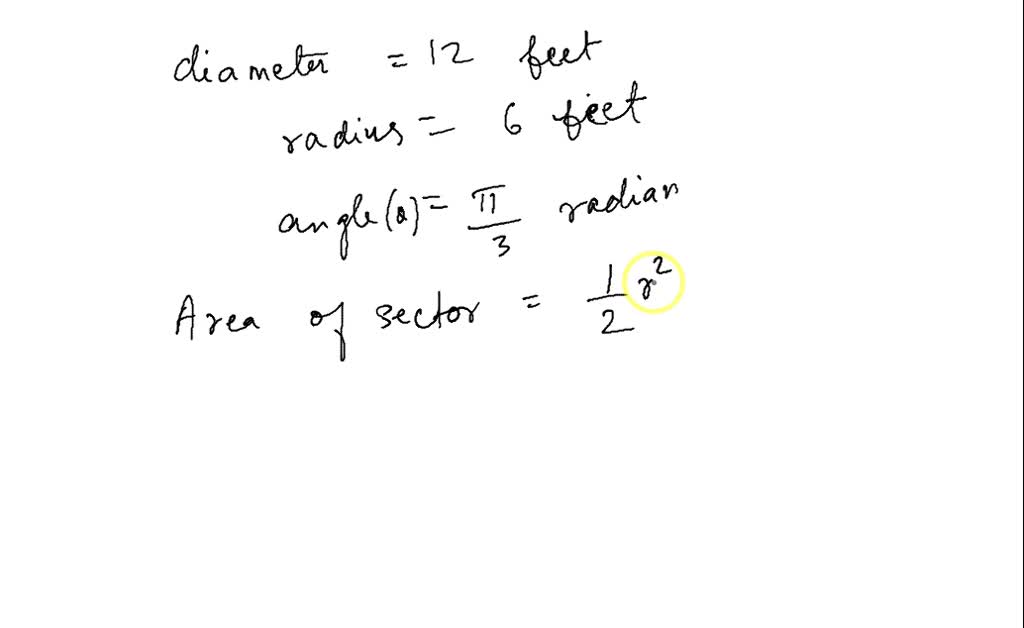 diameter = 12 feet
radius = 6 feet
angle(θ) = π/3 radian
Area of sector = 1/2 r²